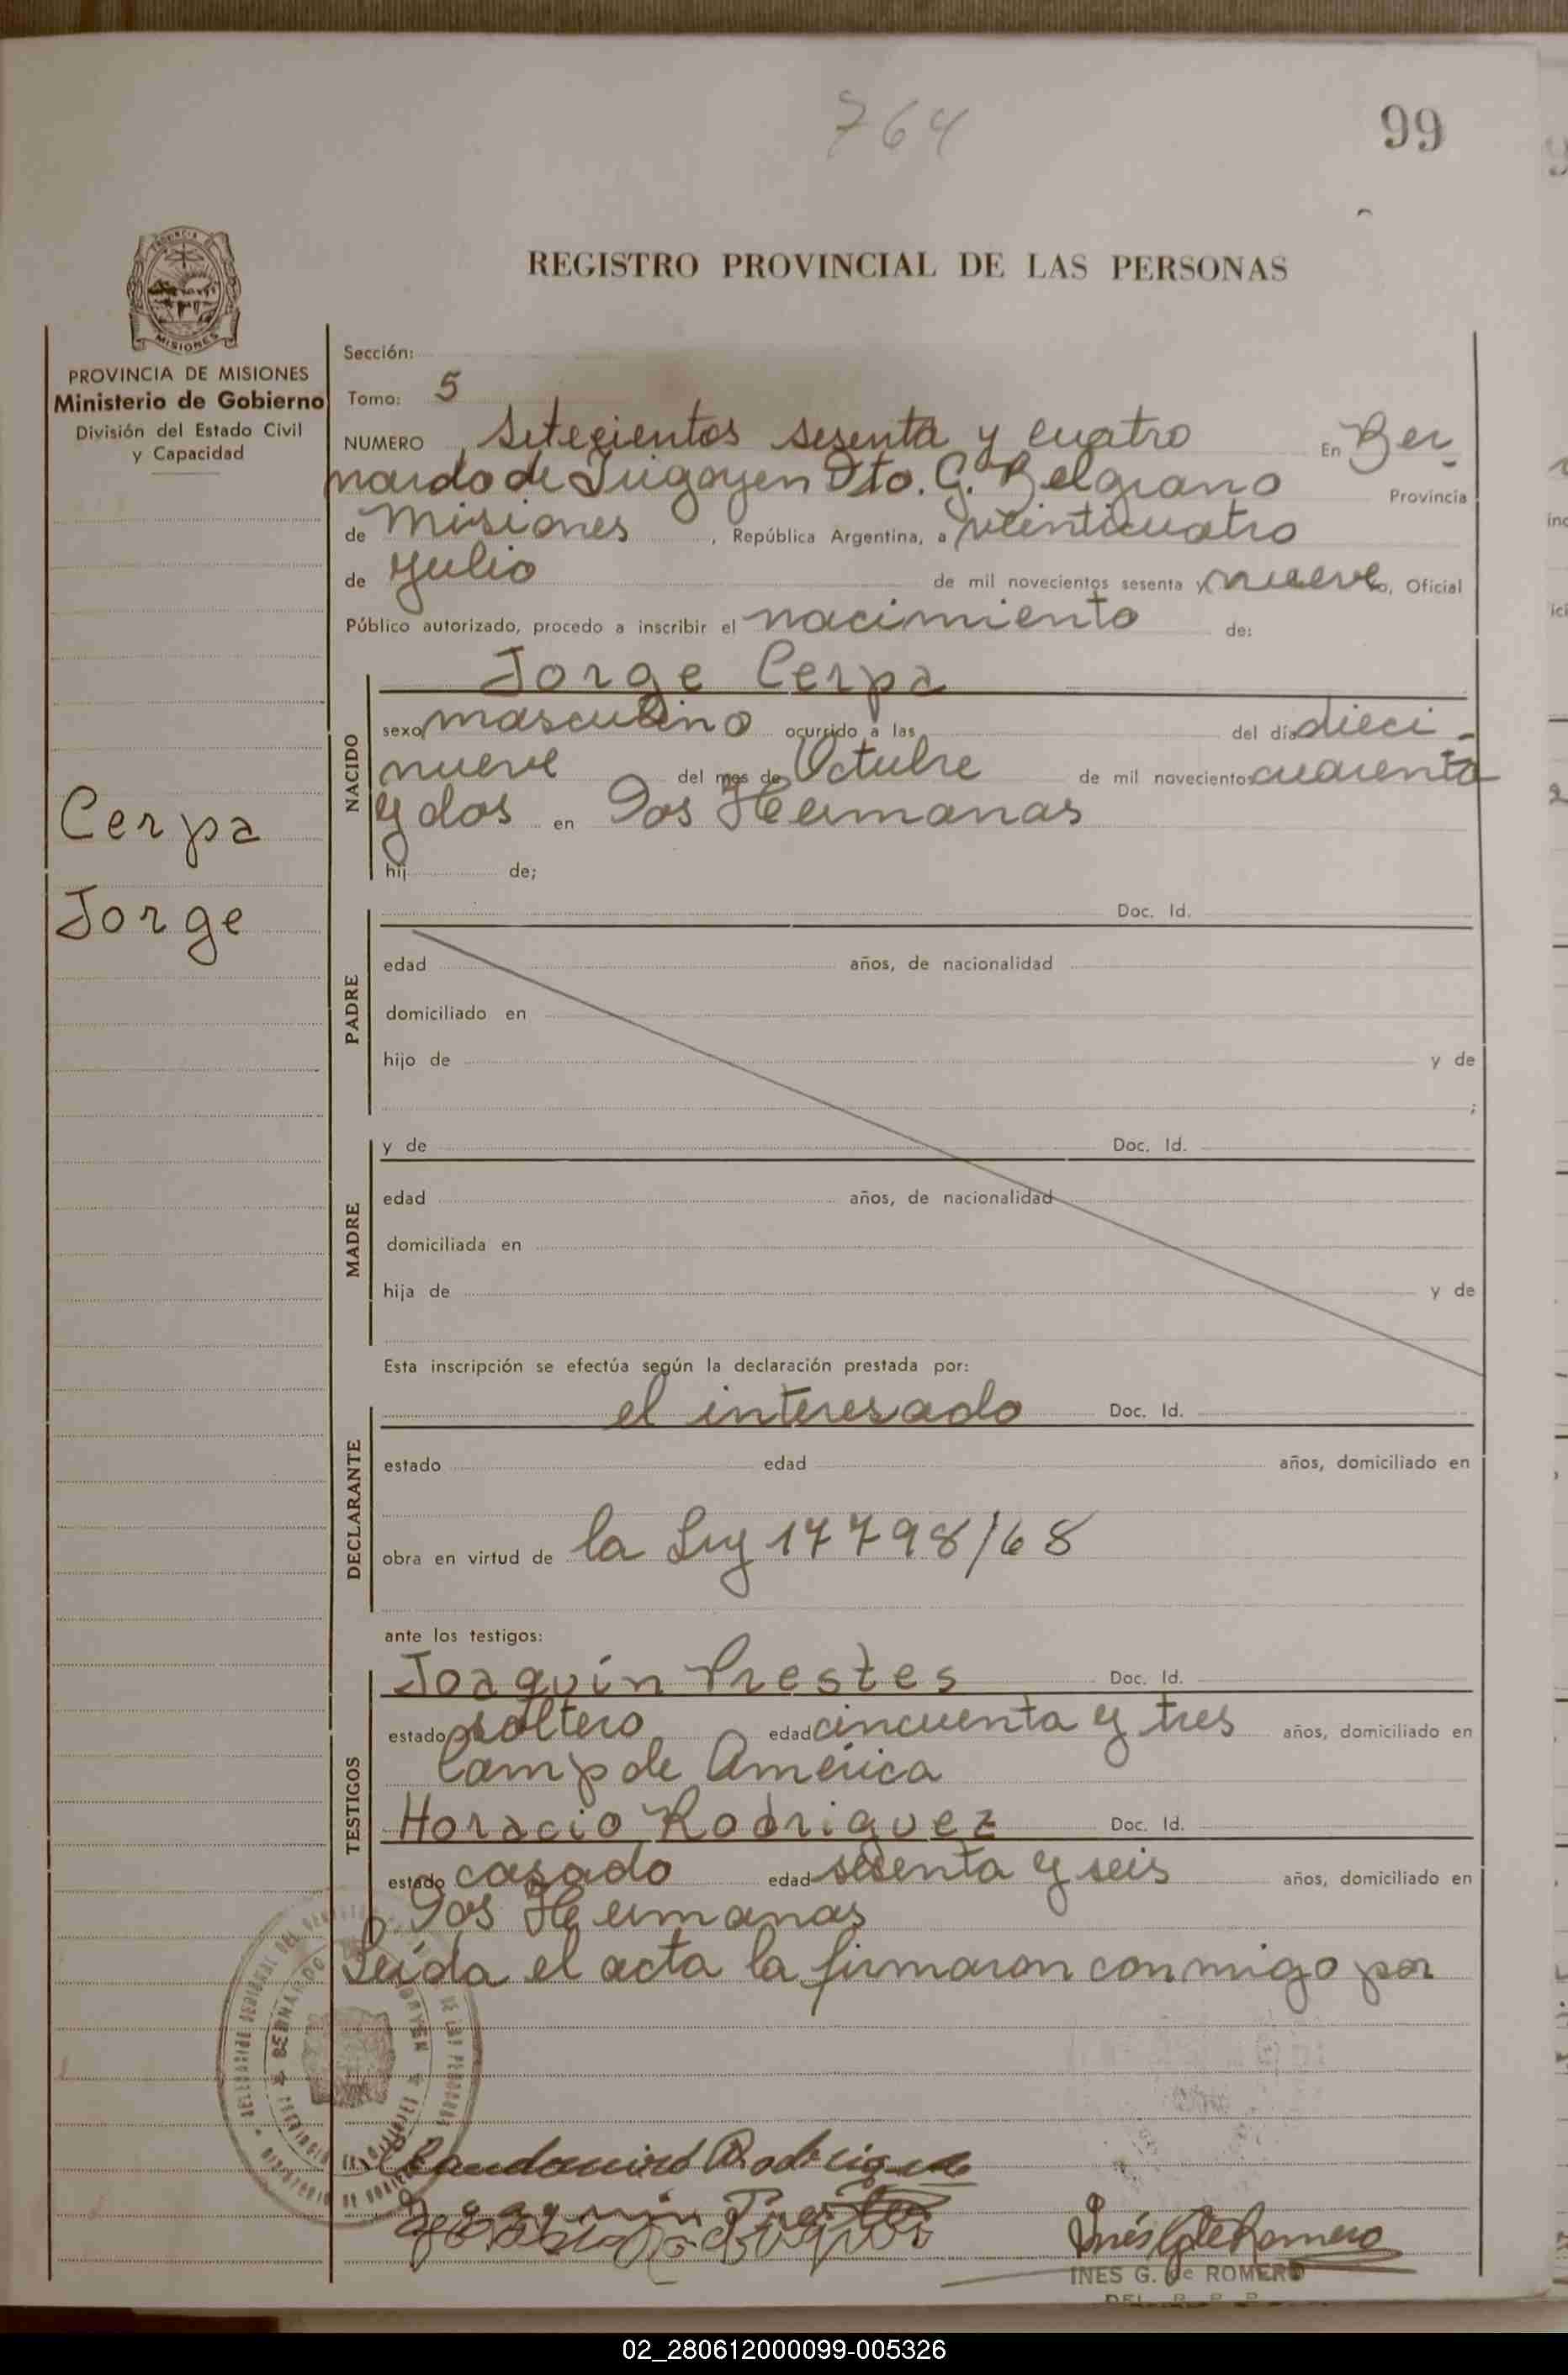 764
99
REGISTRO PROVINCIAL DE LAS PERSONAS
PROVINCIA DE MISIONES
Ministerio de Gobierno
División del Estado Civil
y Capacidad
Cerpa
Jorge
Sección:
Tomo: 5
NUMERO Setecientos sesenta y cuatro En Ber-
nardo de Irigoyen Dto. G. Belgrano Provincia
de Misiones, República Argentina, a veinticuatro
de Julio de mil novecientos sesenta y nueve, Oficial
Público autorizado, procedo a inscribir el nacimiento de:
NACIDO
Jorge Cerpa
sexo masculino ocurrido a las del día dieci-
nueve del mes de Octubre de mil novecientos cuarenta
y dos en Dos Hermanas
hij de;
PADRE
Doc. Id.
edad años, de nacionalidad
domiciliado en
hijo de y de
;
MADRE
y de Doc. Id.
edad años, de nacionalidad
domiciliada en
hija de y de
Esta inscripción se efectúa según la declaración prestada por:
DECLARANTE
el interesado Doc. Id.
estado edad años, domiciliado en
obra en virtud de la Ley 17798/68
ante los testigos:
TESTIGOS
Joaquín Prestes Doc. Id.
estado soltero edad cincuenta y tres años, domiciliado en
Camp de América
Horacio Rodriguez Doc. Id.
estado casado edad sesenta y seis años, domiciliado en
Dos Hermanas
Leída el acta la firmaron conmigo por
Joaquin Prestes
Inés G de Romero
INES G. de ROMERO
02_280612000099-005326